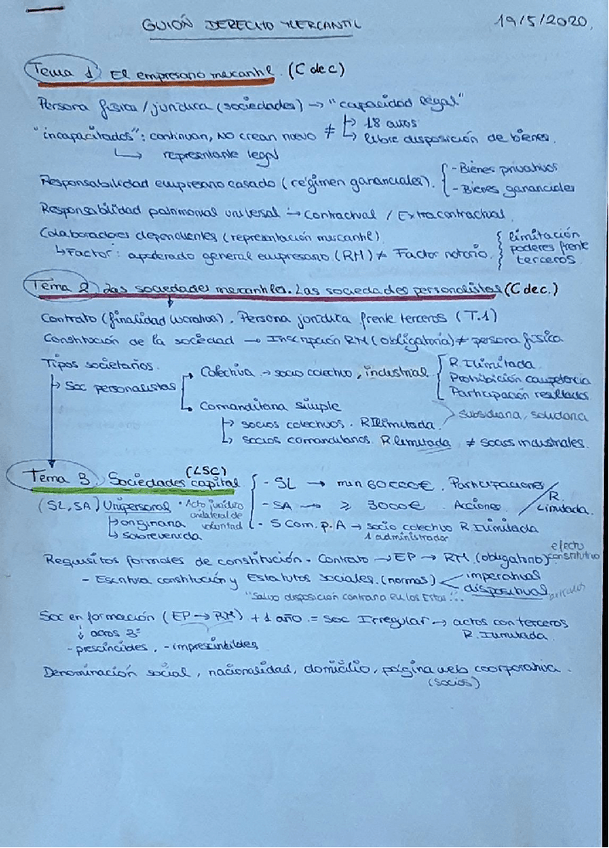 GUIÓN DERECHO MERCANTIL
19/5/2020.
Tema 1 El empresario mercantil. (C de c)
Persona física / jurídica (sociedades) → "capacidad legal"
"incapacitados": continuan, NO crean nuevo ≠ ↳ 18 años
↳ libre disposición de bienes.
↳ representante legal
Responsabilidad empresario casado (régimen gananciales). { - Bienes privativos
- Bienes gananciales
Responsabilidad patrimonial universal → contractual / Extracontractual.
Colaboradores dependientes (representación mercantil)
↳ Factor: apoderado general empresario (RM) ≠ Factor notorio. { limitación poderes frente terceros
Tema 2 Las sociedades mercantiles. Las sociedades personalistas (C de c.)
Contrato (finalidad lucrativa). Persona jurídica frente terceros (T.1)
Constitución de la sociedad → Inscripción RM (obligatoria) ≠ persona física
Tipos societarios.
→ Soc personalistas
→ Colectiva → socio colectivo, industrial { R Ilimitada.
Prohibición competencia
Participación resultados
→ Comanditaria simple
subsidiaria, solidaria
↳ socios colectivos. R Ilimitada.
↳ socios comanditarios. R limitada ≠ socios industriales.
Tema 3 Sociedades capital (LSC)
(SL, SA) Unipersonal • Acto jurídico unilateral de voluntad
↳ originaria
↳ sobrevenida
- SL → min 60000€. Participaciones
- SA → ≥ 3000€. Acciones / R. Limitada.
- S Com. p. A → socio colectivo R Ilimitada
1 administrador
Requisitos formales de constitución. Contrato → EP → RM (obligatorio) efecto constitutivo
- Escritura constitución y Estatutos sociales. (normas) < imperativas
dispositivas artículos
"Salvo disposición contraria en los Estat..."
Soc en formación (EP → RM) + 1 año. = Soc Irregular → actos con terceros
↓ actos 3º
R. Ilimitada.
- prescindibles, - imprescindibles.
Denominación social, nacionalidad, domicilio, página web coorporativa.
(socios)